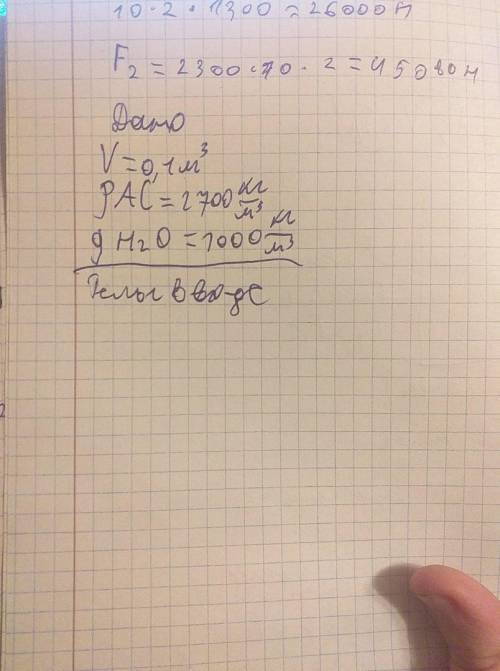 10 · 2 · 1300 = 26000 н
F₂ = 2300 · 10 · 2 = 45080 н
Дано
V = 0,1 м³
ρAC = 2700 кг/м³
ρ H₂O = 1000 кг/м³
в воде